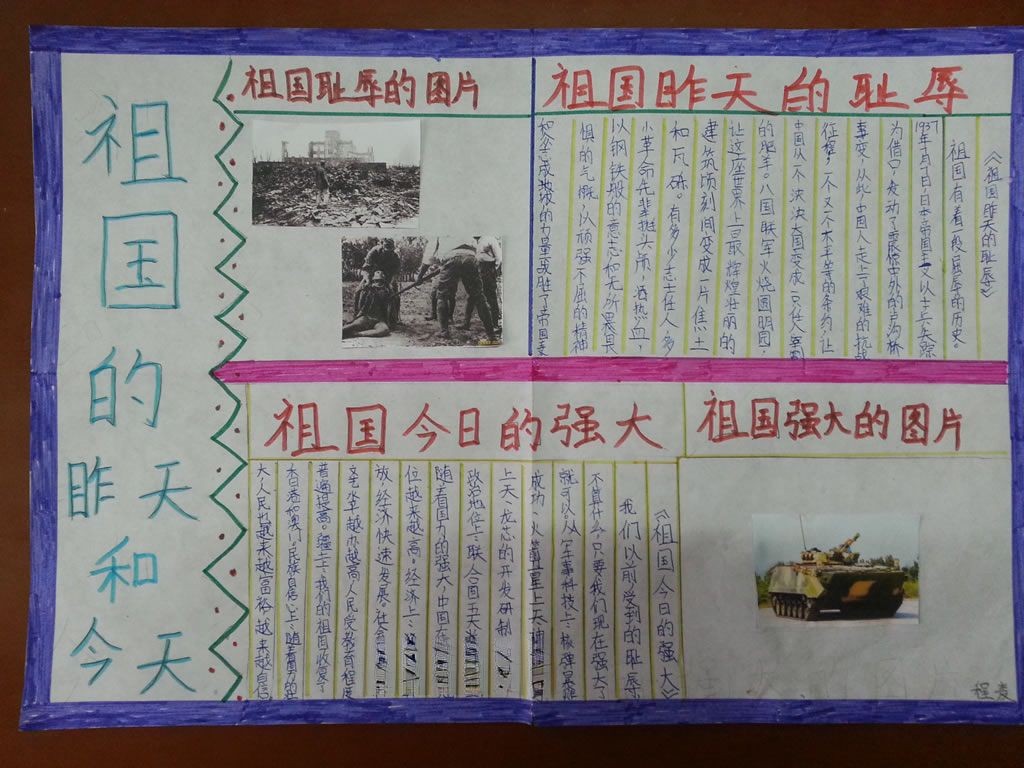 祖国的昨天和今天
祖国耻辱的图片
祖国昨天的耻辱
《祖国昨天的耻辱》
祖国有着一段屈辱的历史。
1937年7月7日，日本帝国主义以士兵失踪
为借口，发动了震惊中外的卢沟桥
事变，从此，中国人走上了艰难的抗战
征程。一个又一个不平等的条约，让
中国从一个泱泱大国变成一只任人宰割
的肥羊。八国联军火烧圆明园，
让这一座世界上最辉煌壮丽的
建筑顷刻间变成一片焦土
和瓦砾。有多少志士仁人，多
少革命先辈抛头颅，洒热血，
以钢铁般的意志和无所畏
惧的气概，以顽强不屈的精神
和众志成城的力量战胜了帝国主
祖国今日的强大
《祖国今日的强大》
我们以前受到的耻辱
不算什么，只要我们现在强大了
就可以。从军事科技上：核弹爆炸
成功、火箭卫星上天、神
上天、龙芯的开发研制
政治地位上：联合国五大
随着国力的强大，中国在
位越来越高。经济上：
放，经济快速发展。社会
越办越高，人民受教育程度
普遍提高。疆土上：我们的祖国收复了
香港和澳门。民族自信心上：随着国力的壮
大，人民也越来越富裕，越来越自信
祖国强大的图片